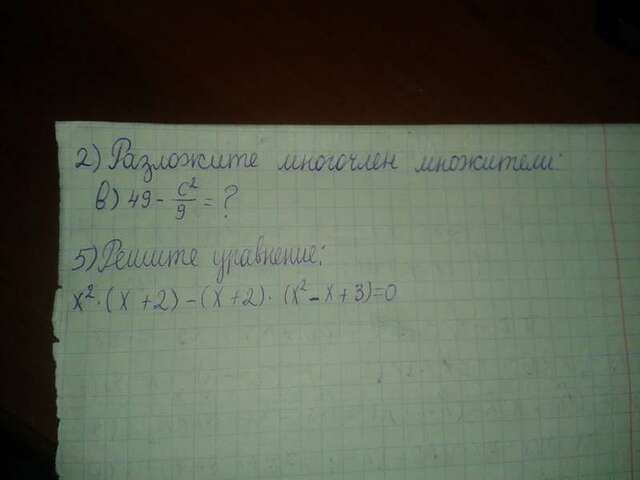 2) Разложите многочлен множители:
в) 49 - c²/9 = ?
5) Решите уравнение:
x² · (x + 2) - (x + 2) · (x² - x + 3) = 0